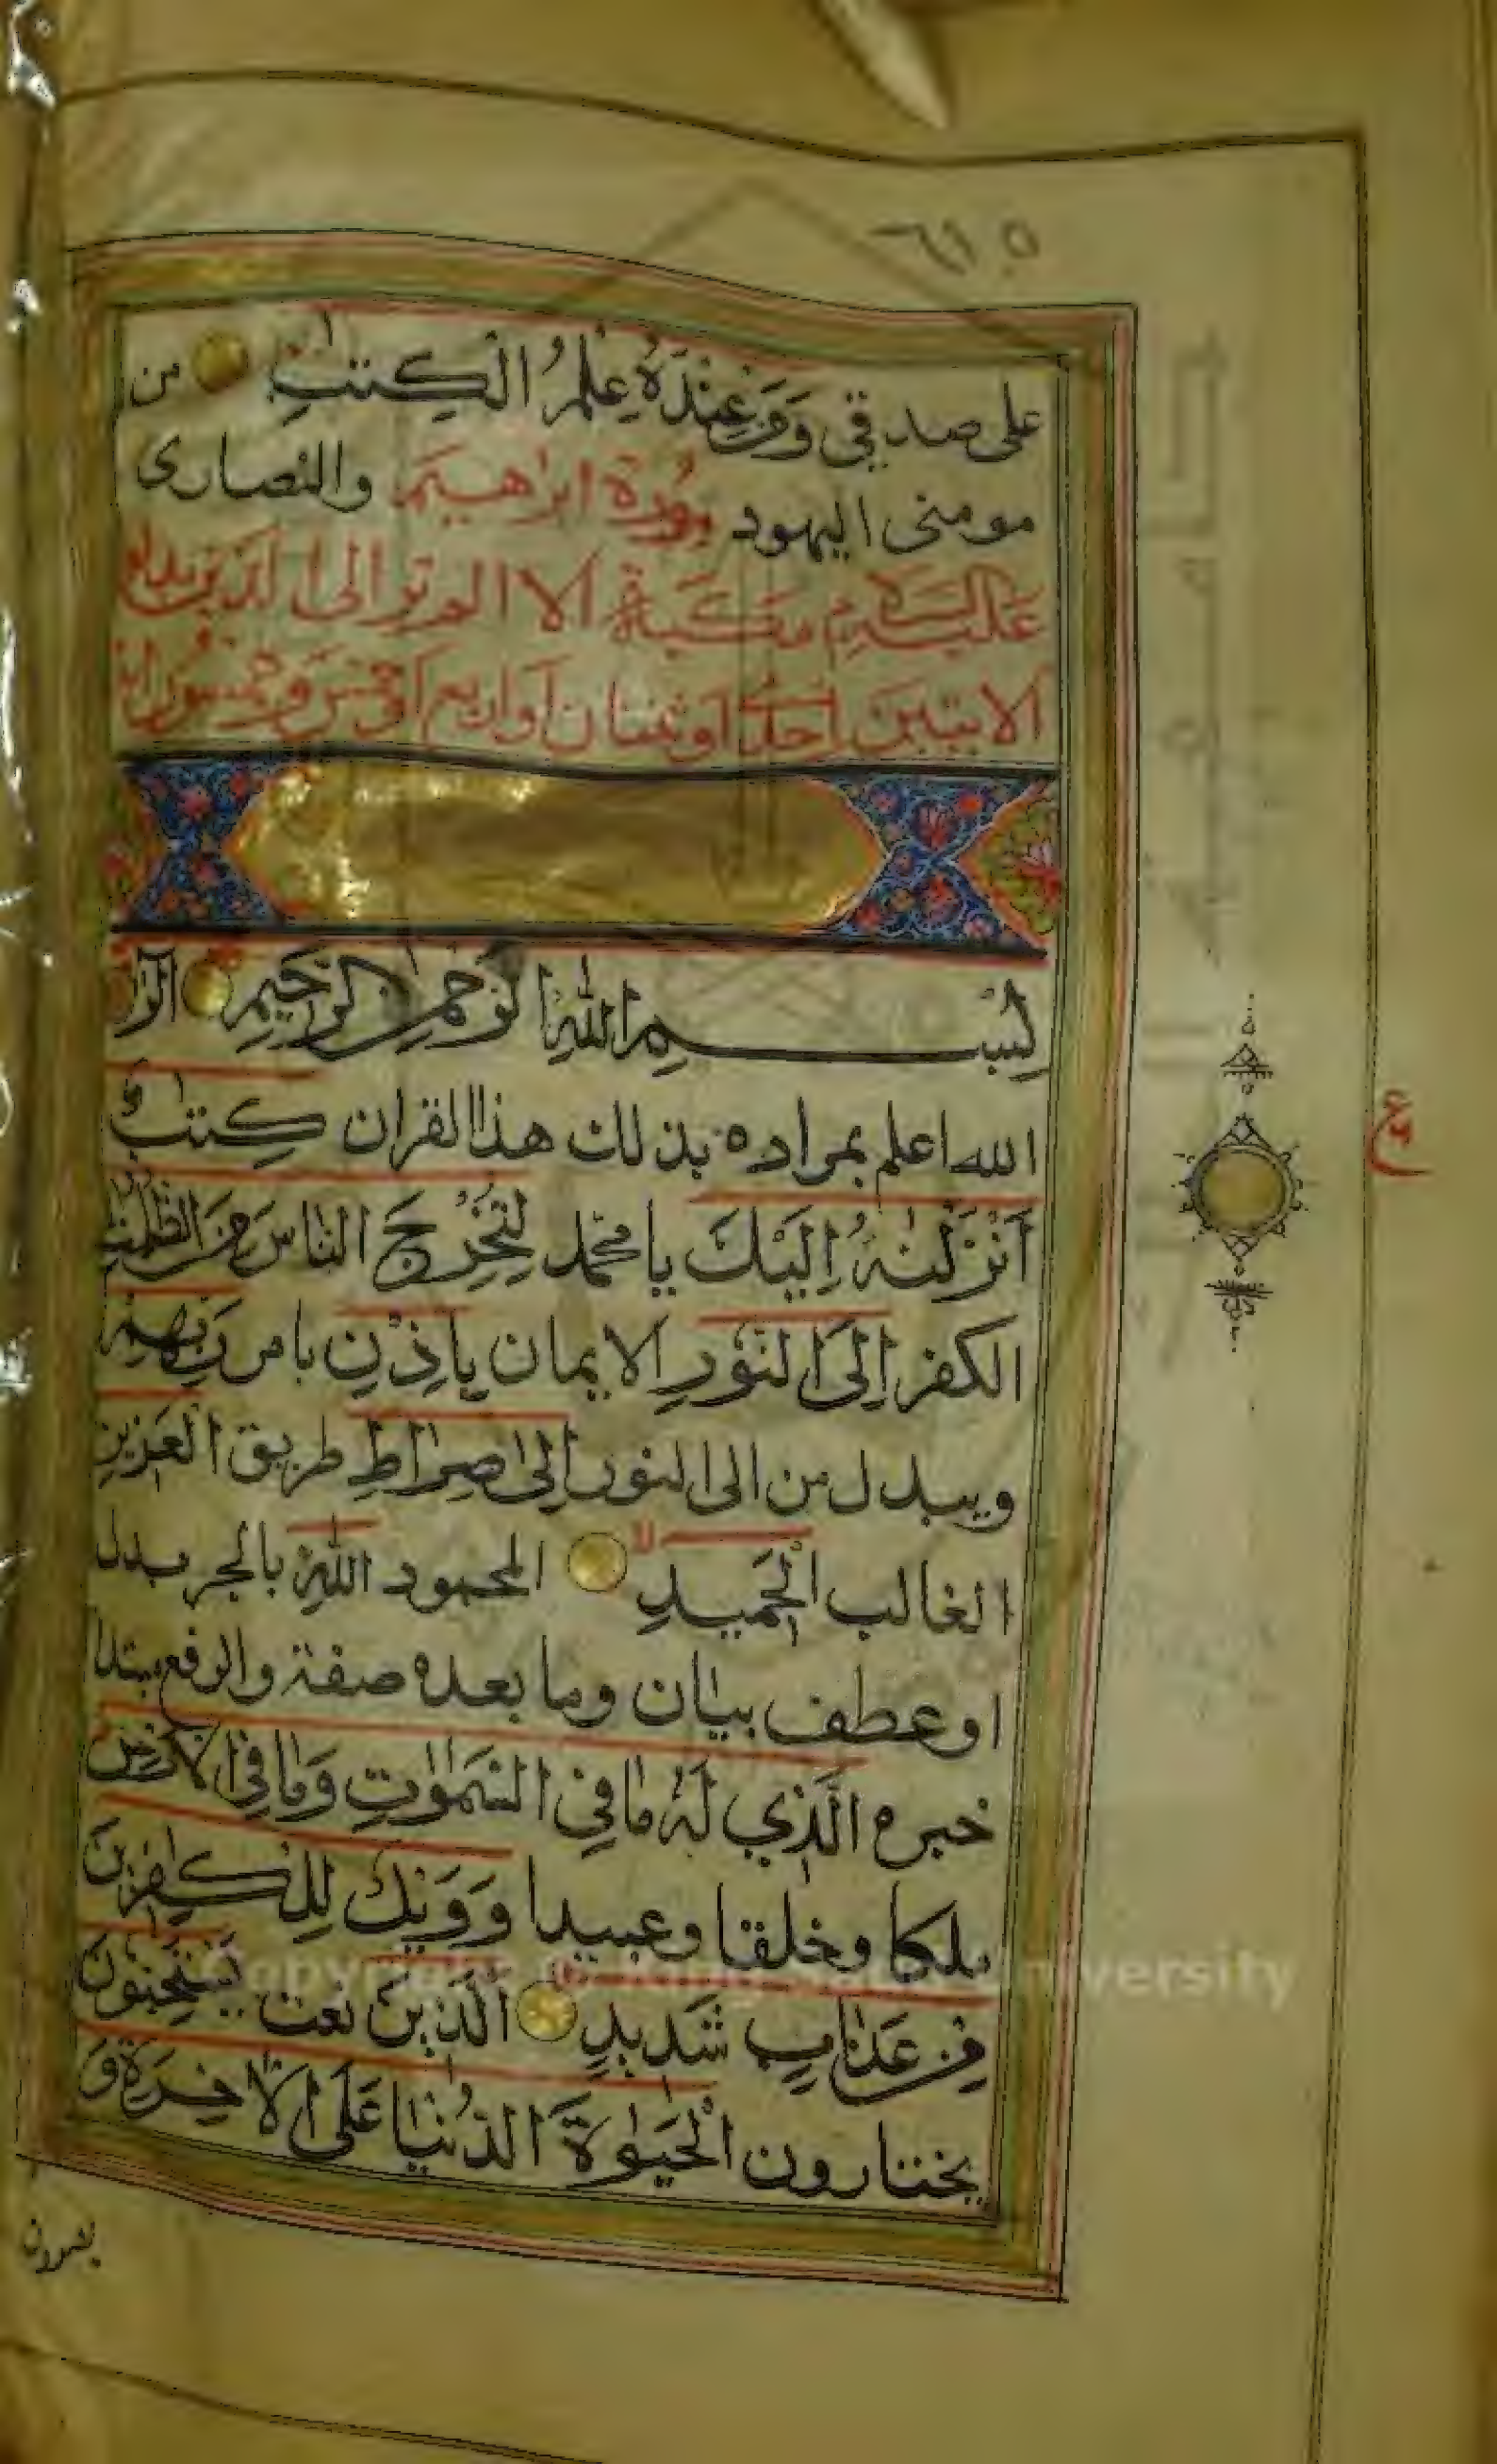 ٦١٥
على صدقي وَمَنْ عِنْدَهُ عِلْمُ الْكِتٰبِ من
مومنى اليهود سورة ابراهيم والنصارى
عليه السلام مكية الا الم تر الى الذين بدلوا
الايتين احدى او ثنتان او اربع او خمس وخمسون اية
بِسْمِ اللّٰهِ الرَّحْمٰنِ الرَّحِيمِ الٓرٰ
الله اعلم بمراده بذلك هذا القران كِتٰبٌ
اَنْزَلْنٰهُ اِلَيْكَ يا محمد لِتُخْرِجَ النَّاسَ مِنَ الظُّلُمٰتِ
الكفر اِلَى النُّورِ الايمان بِاِذْنِ بامر رَبِّهِمْ
ويبدل من الى النور اِلٰى صِرَاطِ طريق الْعَزِيزِ
الغالب الْحَمِيدِ لا المحمود اللّٰهِ بالجر بدل
او عطف بيان وما بعده صفة والرفع مبتدا
خبره الَّذِي لَهُ مَا فِي السَّمٰوٰتِ وَمَا فِي الْاَرْضِ
ملكا وخلقا وعبيدا وَوَيْلٌ لِلْكٰفِرِينَ
مِنْ عَذَابٍ شَدِيدٍ الَّذِينَ نعت يَسْتَحِبُّونَ
يختارون الْحَيٰوةَ الدُّنْيَا عَلَى الْاٰخِرَةِ وَ
يصدون
ع
Copyright © King Saud University